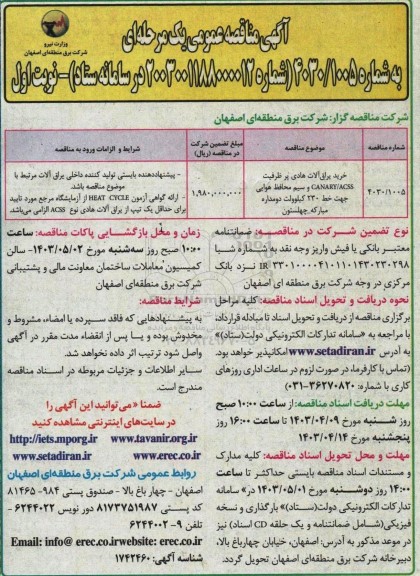 وزارت نیرو
شرکت برق منطقه‌ای اصفهان
آگهی مناقصه عمومی یک مرحله‌ای
به شماره ۴۰۳۰/۱۰۰۵ (شماره ۲۰۰۳۰۰۱۱۸۸۰۰۰۰۱۲ در سامانه ستاد) - نوبت اول
شرکت مناقصه گزار: شرکت برق منطقه‌ای اصفهان
شماره مناقصه
موضوع مناقصه
مبلغ تضمین شرکت در مناقصه (ریال)
شرایط و الزامات ورود به مناقصه
۴۰۳۰/۱۰۰۵
خرید یراق‌آلات هادی پر ظرفیت
CANARY/ACSS و سیم محافظ هوایی
جهت خط ۲۳۰ کیلوولت دومداره
مبارکه_چهلستون
۱,۹۸۰,۰۰۰,۰۰۰
- پیشنهاددهنده بایستی تولید کننده داخلی یراق آلات مرتبط با
موضوع مناقصه باشد.
- ارائه گواهی آزمون HEAT CYCLE از آزمایشگاه مرجع مورد تایید
برای حداقل یک تیپ از یراق آلات هادی نوع ACSS الزامی می‌باشد.
نوع تضمین شرکت در مناقصه: ضمانتنامه
معتبر بانکی یا فیش واریز وجه نقد به شماره شبا
IR ۳۳۰۱۰۰۰۰۴۱۰۱۱۰۱۴۳۰۲۳۰۲۹۸ نزد بانک
مرکزی در وجه شرکت برق منطقه ای اصفهان
نحوه دریافت و تحویل اسناد مناقصه: کلیه مراحل
برگزاری مناقصه از دریافت و تحویل اسناد تا مبادله قرارداد،
با مراجعه به «سامانه تدارکات الکترونیکی دولت(ستاد)»
به آدرس www.setadiran.ir امکانپذیر خواهد بود.
(تماس با کارفرما، در صورت لزوم در ساعات اداری روزهای
کاری با شماره: ۳۶۲۷۰۸۲۰-۰۳۱)
مهلت دریافت اسناد مناقصه: از ساعت ۱۰:۰۰ صبح
روز شنبه مورخ ۱۴۰۳/۰۴/۰۹ تا ساعت ۱۶:۰۰ روز
پنجشنبه مورخ ۱۴۰۳/۰۴/۱۴
مهلت و محل تحویل اسناد مناقصه: کلیه مدارک
و مستندات اسناد مناقصه بایستی حداکثر تا ساعت
۱۴:۰۰ روز دوشنبه مورخ ۱۴۰۳/۰۵/۰۱ در« سامانه
تدارکات الکترونیکی دولت(ستاد)» بارگذاری و نسخه
فیزیکی(شامل ضمانتنامه و یک حلقه CD اسناد) نیز
در موعد مذکور به آدرس: اصفهان، خیابان چهارباغ بالا،
دبیرخانه شرکت برق منطقه‌ای اصفهان تحویل گردد.
زمان و محل بازگشایی پاکات مناقصه: ساعت
۱۰:۰۰ صبح روز سه‌شنبه مورخ ۱۴۰۳/۰۵/۰۲- سالن
کمیسیون معاملات ساختمان معاونت مالی و پشتیبانی
شرکت برق منطقه‌ای اصفهان
شرایط مناقصه:
به پیشنهادهایی که فاقد سپرده یا امضاء، مشروط و
مخدوش بوده و یا پس از انقضاء مدت مقرر در آگهی
واصل شود ترتیب اثر داده نخواهد شد.
سایر اطلاعات و جزئیات مربوطه در اسناد مناقصه
مندرج است.
ضمنا «می‌توانید این آگهی را
در سایت‌های اینترنتی مشاهده کنید
http://iets.mporg.ir www.tavanir.org.ir
www.setadiran.ir www.erec.co.ir
روابط عمومی شرکت برق منطقه‌ای اصفهان
اصفهان - چهار باغ بالا - صندوق پستی ۹۸۴- ۸۱۴۶۵
کد پستی ۸۱۷۳۷۵۱۹۸۷ دور نویس ۶۲۴۴۰۲۲ -
تلفن ۹- ۶۲۴۴۰۰۲
Email: info@ erec.co.ir website: erec.co.ir
شناسه آگهی: ۱۷۴۲۴۶۰